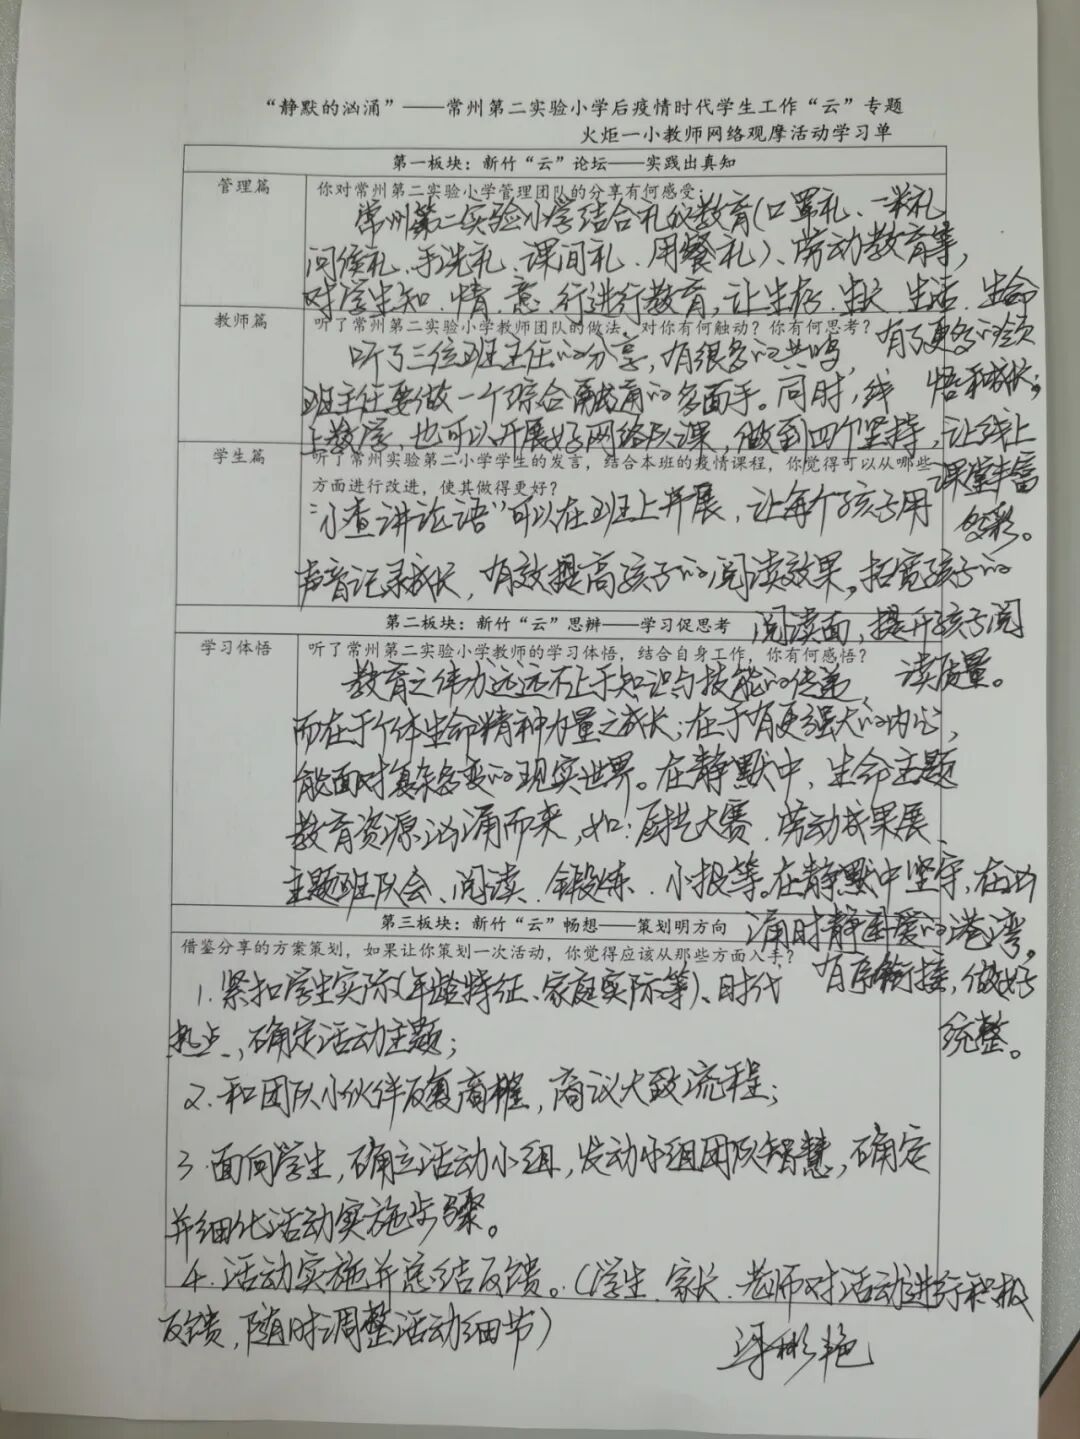 “静默的汹涌”——常州第二实验小学后疫情时代学生工作“云”专题
火炬一小教师网络观摩活动学习单
第一板块：新竹“云”论坛——实践出真知
管理篇
你对常州第二实验小学管理团队的分享有何感受：
常州第二实验小学结合礼仪教育(口罩礼、一米礼
问候礼、手洗礼、课间礼、用餐礼)、劳动教育等，
对学生知、情、意、行进行教育，让生存、生长、生活、生命
有了更多的领
悟和成长；
教师篇
听了常州第二实验小学教师团队的做法，对你有何触动？你有何思考？
听了三位班主任的分享，有很多的共鸣，
班主任要做一个综合融通的多面手。同时，线
上教学，也可以开展好网络队课，做到四个坚持，让线上
课堂丰富
多彩。
学生篇
听了常州实验第二小学学生的发言，结合本班的疫情课程，你觉得可以从哪些
方面进行改进，使其做得更好？
“小查讲论语”可以在班上开展，让每个孩子用
声音记录成长，有效提高孩子的阅读效果，拓宽孩子的
阅读面，提升孩子阅
读质量。
第二板块：新竹“云”思辨——学习促思考
学习体悟
听了常州第二实验小学教师的学习体悟，结合自身工作，你有何感悟？
教育之伟力远远不止于知识与技能的传递，
而在于个体生命精神力量之成长；在于有更强大的内心，
能面对复杂多变的现实世界。在静默中，生命主题
教育资源汹涌而来，如：厨艺大赛、劳动成果展、
主题班队会、阅读、锻炼、小报等。在静默中坚守，在汹
涌时静 爱的港湾。
有序衔接，做好
统整。
第三板块：新竹“云”畅想——策划明方向
借鉴分享的方案策划，如果让你策划一次活动，你觉得应该从那些方面入手？
1. 紧扣学生实际(年龄特征、家庭实际等)、时代
热点，确定活动主题；
2. 和团队小伙伴反复商榷，商议大致流程；
3. 面向学生，确立活动小组，发动小组团队智慧，确定
并细化活动实施步骤。
4. 活动实施并总结反馈。(学生、家长、老师对活动进行积极
反馈，随时调整活动细节)
彬艳